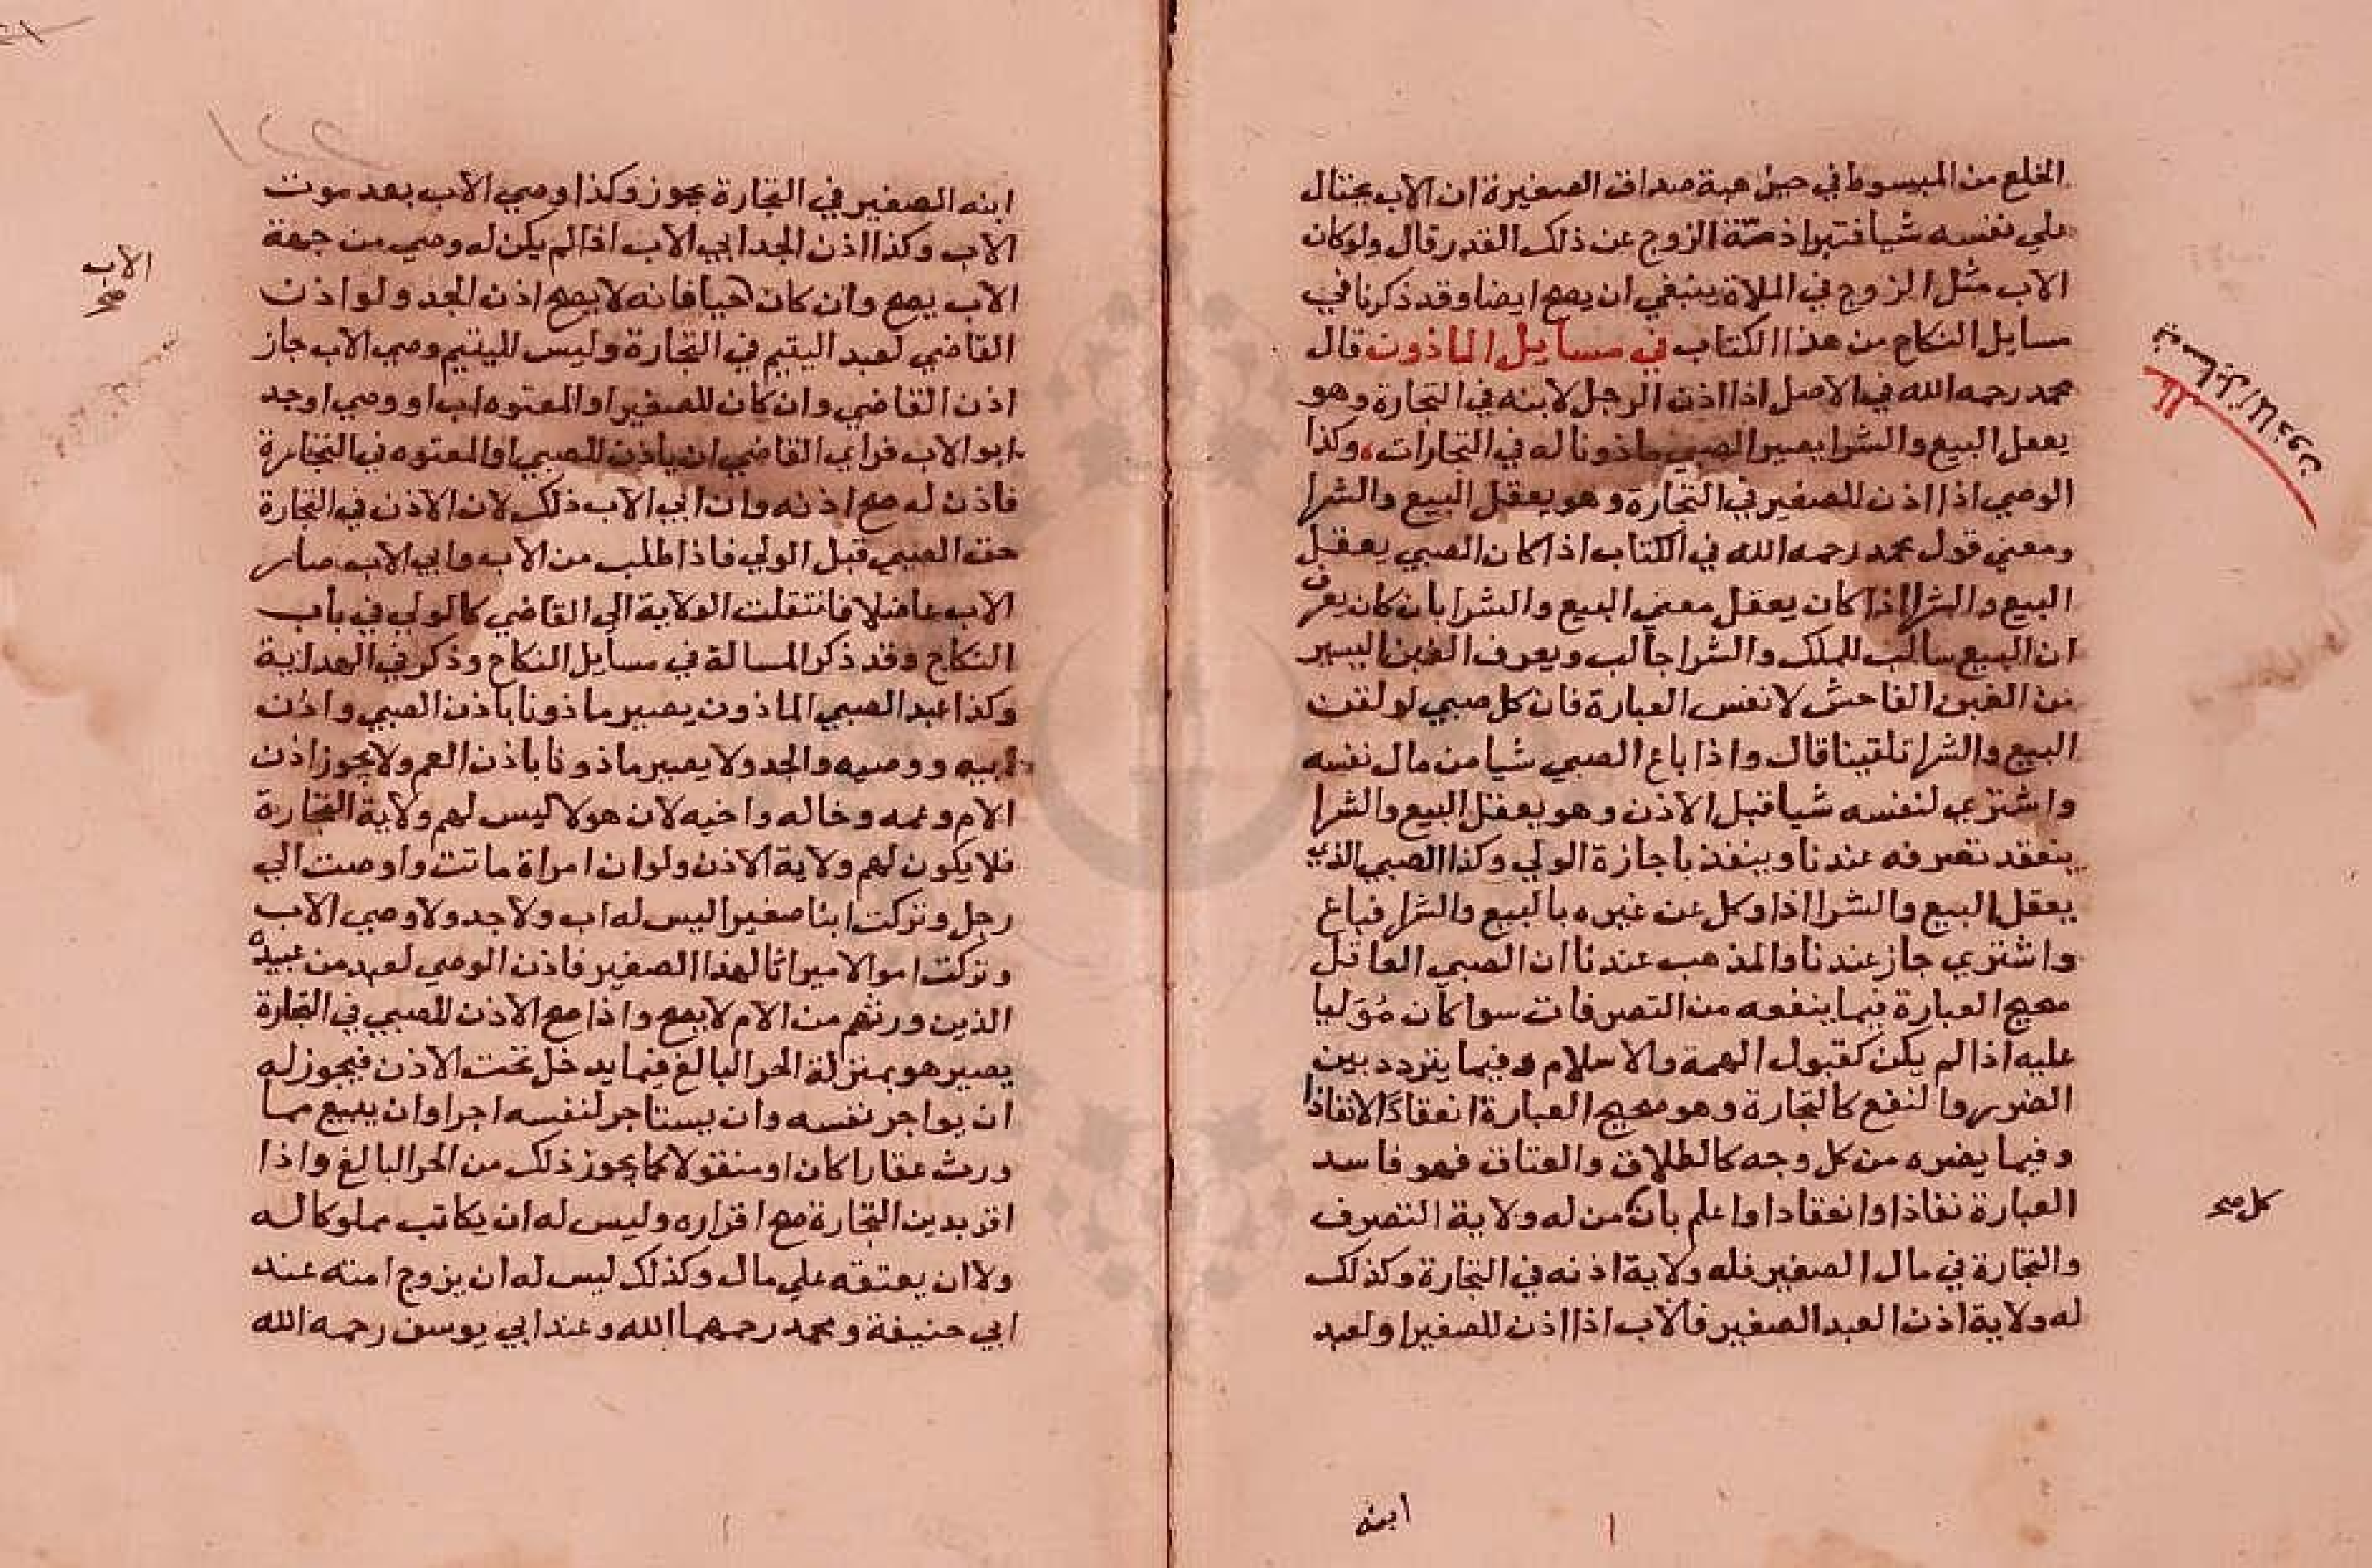 الخلع من المبسوط في حيل هبة صداق الصغيرة ان الاب يحتال
علي نفسه شيا فتبرا ذمة الزوج عن ذلك القدر قال ولو كان
الاب مثل الزوج في الملاة ينبغي ان يصح ايضا وقد ذكرنا في
مسايل النكاح من هذا الكتاب في مسايل الماذون قال
محمد رحمه الله في الاصل اذا اذن الرجل لابنه في التجارة وهو
يعقل البيع والشرا يصير الصبي ماذونا له في التجارات، وكذا
الوصي اذا اذن للصغير في التجارة وهو يعقل البيع والشرا
ومعني قول محمد رحمه الله في الكتاب اذا كان الصبي يعقل
البيع والشرا اذا كان يعقل معني البيع والشرا بان كان يعرف
ان البيع سالب للملك والشرا جالب ويعرف الغبن اليسير
من الغبن الفاحش لا نفس العبارة فان كل صبي لو لقن
البيع والشرا تلقينا قال واذا باع الصبي شيا من مال نفسه
واشتري لنفسه شيا قبل الاذن وهو يعقل البيع والشرا
ينعقد تصرفه عندنا وينفذ باجازة الولي وكذا الصبي الذي
يعقل البيع والشرا اذا وكل عن غيره بالبيع والشرا فباع
واشتري جاز عندنا والمذهب عندنا ان الصبي العاقل
صحيح العبارة فيما ينفعه من التصرفات سوا كان مُوَليا
عليه اذا لم يكن كقبول الهبة والاسلام وفيما يتردد بين
الضرر والنفع كالتجارة وهو صحيح العبارة انعقادًا لا نفاذا
وفيما يضره من كل وجه كالطلاق والعتاق فهو فاسد
العبارة نفاذا وانعقادا واعلم بان من له ولاية التصرف
والتجارة في مال الصغير فله ولاية اذنه في التجارة وكذلك
له ولاية اذن العبد الصغير فالاب اذا اذن للصغير او لعبد
في مسائل الماذون
كل صح
ابنه
ابنه الصغير في التجارة يجوز وكذا وصي الاب بعد موت
الاب وكذا اذن الجد ابي الاب اذا لم يكن له وصي من جهة
الاب يصح وان كان حيا فانه لا يصح اذن الجد ولو اذن
القاضي لعبد اليتيم في التجارة وليس لليتيم وصي الاب جاز
اذن القاضي وان كان للصغير او المعتوه اب او وصي او جد
ابو الاب فراي القاضي ان ياذن للصبي او المعتوه في التجارة
فاذن له صح اذنه وان ابي الاب ذلك لان الاذن في التجارة
حق الصبي قبل الولي فاذا طلب من الاب وابي الاب صار
الاب عاضلا فانتقلت الولاية الي القاضي كالولي في باب
النكاح وقد ذكر المسالة في مسايل النكاح وذكر في الهداية
وكذا عبد الصبي الماذون يصير ماذونا باذن الصبي واذن
ابيه ووصيه والجد ولا يصير ماذونا باذن العم ولا يجوز اذن
الام وعمه وخاله واخيه لان هولا ليس لهم ولاية التجارة
فلا يكون لهم ولاية الاذن ولو ان امراة ماتت واوصت الي
رجل وتركت ابنا صغيرا ليس له اب ولا جد ولا وصي الاب
وتركت اموالا ميراثا لهذا الصغير فاذن الوصي لعبد من عبيده
الذين ورثهم من الام لا يصح واذا صح الاذن للصبي في التجارة
يصير هو بمنزلة الحر البالغ فيما يدخل تحت الاذن فيجوز له
ان يواجر نفسه وان يستاجر لنفسه اجرا وان يبيع مما
ورث عقارا كان او منقولا كما يجوز ذلك من الحر البالغ واذا
اقر بدين التجارة صح اقراره وليس له ان يكاتب مملوكا له
ولا ان يعتقه علي مال وكذلك ليس له ان يزوج امته عند
ابي حنيفة ومحمد رحمهما الله وعند ابي يوسف رحمه الله
الاب
صح